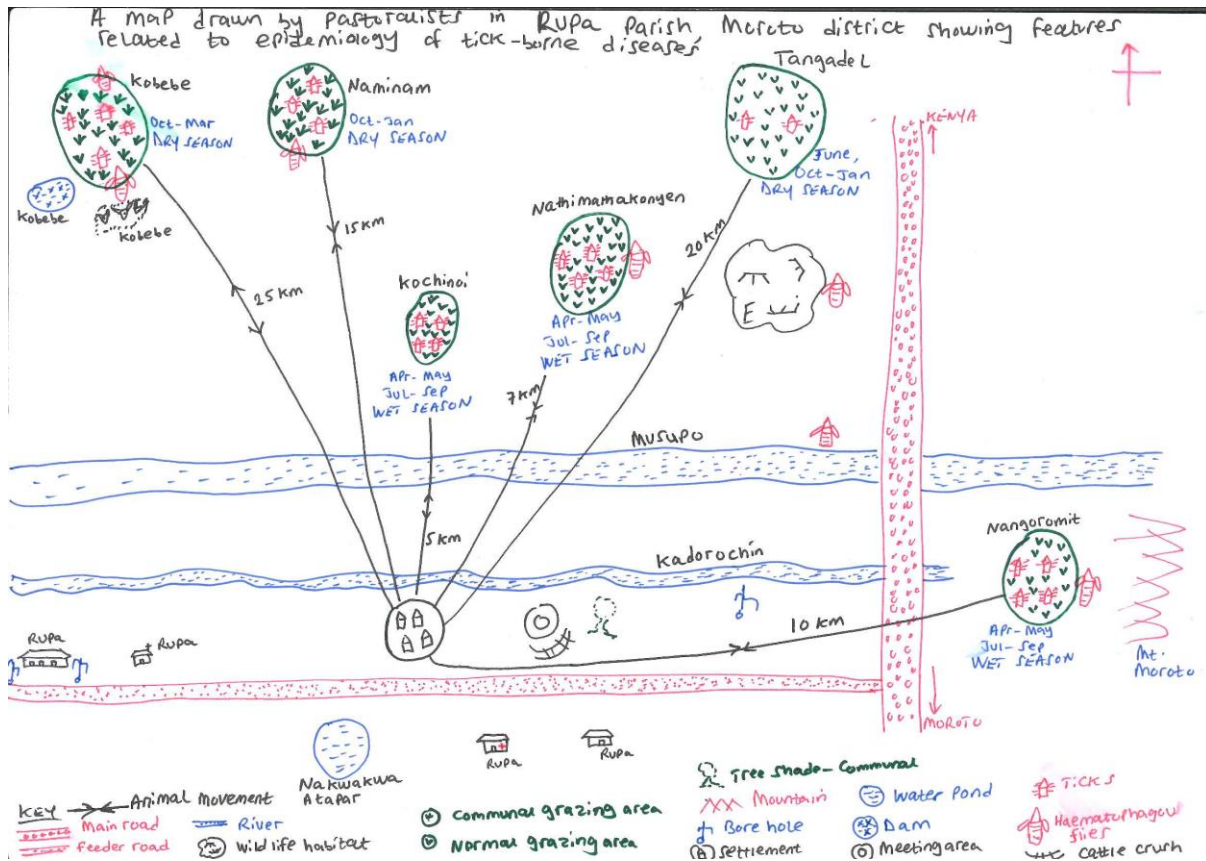 A map drawn by pastoralists in Rupa Parish, Moroto district showing features
related to epidemiology of tick-borne diseases
Kobebe
Oct-Mar
DRY SEASON
Kobebe
Kobebe
Naminam
Oct-Jan
DRY SEASON
Tangadel
June,
Oct-Jan
DRY SEASON
KENYA
Nathimamakonyen
Apr-May
Jul-Sep
WET SEASON
Kochinoi
Apr-May
Jul-Sep
WET SEASON
25 km
15 km
5 km
7 km
20 km
E
MUSUPO
Kadorochin
Nangoromit
Apr-May
Jul-Sep
WET SEASON
10 km
Mt.
Moroto
Rupa
Rupa
MOROTO
Nakwakwa
Atapar
Rupa
Rupa
KEY
Animal movement
Main road
Feeder road
River
Wildlife habitat
Communal grazing area
Normal grazing area
Tree Shade-Communal
Mountain
Bore hole
Settlement
Water Pond
Dam
Meeting area
Ticks
Haematophagous
flies
Cattle crush